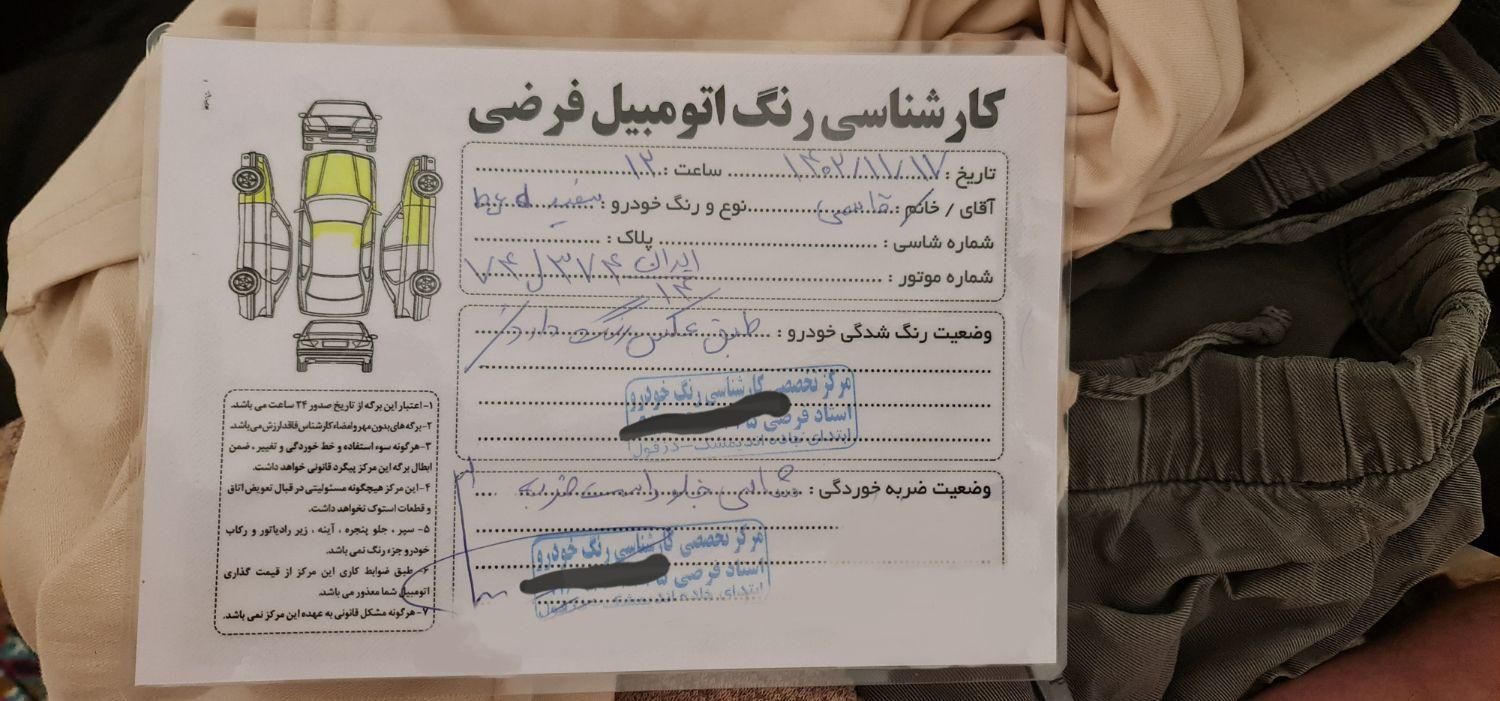 کارشناسی رنگ اتومبیل فرضی
تاریخ : ۱۴۰۲/۱۱/۱۷ ساعت : ۱۲
آقای / خانم : قاسمی نوع و رنگ خودرو : سفید
شماره شاسی : پلاک :
شماره موتور : ایران ۱۴ ۷۴ ل ۳۷۴
وضعیت رنگ شدگی خودرو : طبق عکس رنگ دارد
مرکز تخصصی کارشناسی رنگ خودرو
استاد فرضی
ابتدای جاده اندیمشک - دزفول
وضعیت ضربه خوردگی : جلو راست ضربه
مرکز تخصصی کارشناسی رنگ خودرو
استاد فرضی
ابتدای جاده اندیمشک - دزفول
۱- اعتبار این برگه از تاریخ صدور ۲۴ ساعت می باشد.
۲- برگه های بدون مهر و امضاء کارشناس فاقد ارزش می باشد.
۳- هرگونه سوء استفاده و خط خوردگی و تغییر ، ضمن
ابطال برگه این مرکز پیگرد قانونی خواهد داشت.
۴- این مرکز هیچگونه مسئولیتی در قبال تعویض اتاق
و قطعات استوک نخواهد داشت.
۵- سپر ، جلو پنجره ، آینه ، زیر رادیاتور و رکاب
خودرو جزء رنگ نمی باشد.
۶- طبق ضوابط کاری این مرکز از قیمت گذاری
اتومبیل شما معذور می باشد.
۷- هرگونه مشکل قانونی به عهده این مرکز نمی باشد.